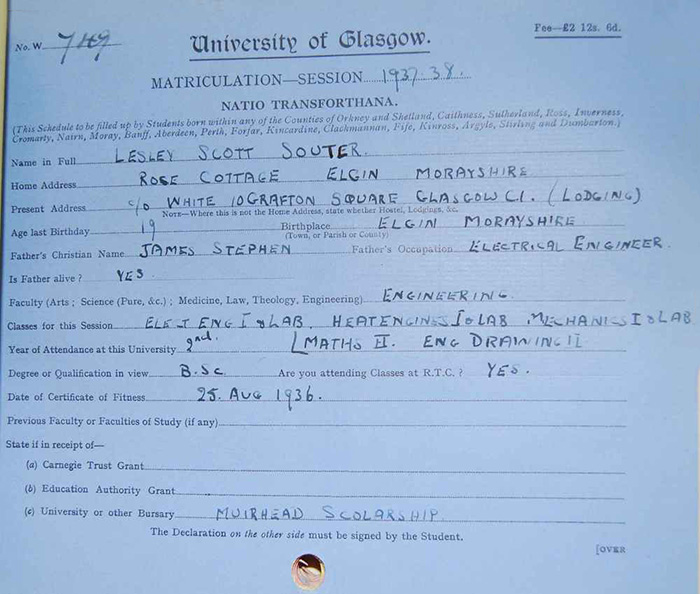 Fee—£2 12s. 6d.
No. W 749
University of Glasgow.
MATRICULATION—SESSION 1937-38.
NATIO TRANSFORTHANA.
(This Schedule to be filled up by Students born within any of the Counties of Orkney and Shetland, Caithness, Sutherland, Ross, Inverness,
Cromarty, Nairn, Moray, Banff, Aberdeen, Perth, Forfar, Kincardine, Clackmannan, Fife, Kinross, Argyle, Stirling and Dumbarton.)
Name in Full LESLEY SCOTT SOUTER.
Home Address ROSE COTTAGE ELGIN MORAYSHIRE
Present Address c/o WHITE 10 GRAFTON SQUARE GLASGOW C1. (LODGING)
NOTE—Where this is not the Home Address, state whether Hostel, Lodgings, &c.
Age last Birthday 19 Birthplace ELGIN MORAYSHIRE
(Town, or Parish or County)
Father's Christian Name JAMES STEPHEN Father's Occupation ELECTRICAL ENGINEER.
Is Father alive? YES.
Faculty (Arts; Science (Pure, &c.); Medicine, Law, Theology, Engineering) ENGINEERING.
Classes for this Session ELECT ENG I & LAB, HEAT ENGINES I & LAB MECHANICS I & LAB
Year of Attendance at this University 2nd. MATHS II. ENG DRAWING II
Degree or Qualification in view B.Sc. Are you attending Classes at R.T.C.? YES.
Date of Certificate of Fitness 25. AUG 1936.
Previous Faculty or Faculties of Study (if any)
State if in receipt of—
(a) Carnegie Trust Grant
(b) Education Authority Grant
(c) University or other Bursary MUIRHEAD SCOLARSHIP
The Declaration on the other side must be signed by the Student.
[OVER